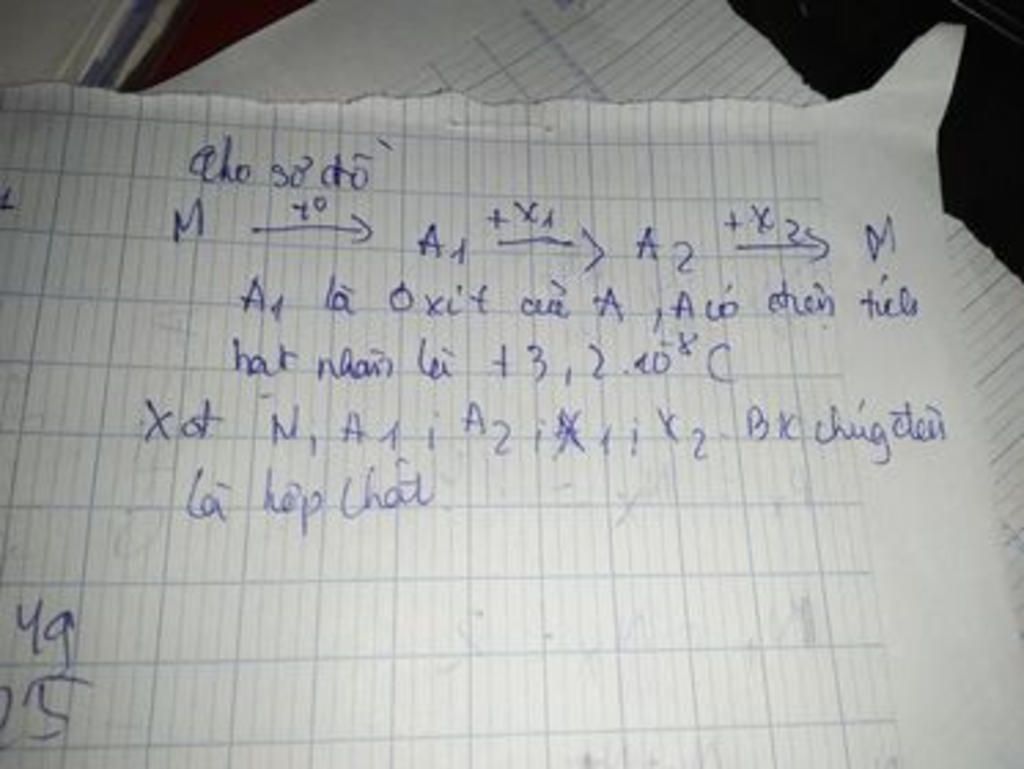 Cho sơ đồ
M —t°→ A1 —+X1→ A2 —+X2→ M
A1 là Oxit của A, A có điện tích
hạt nhân là +3,2.10⁻⁸ C
Xđ M, A1; A2; X1; X2. BK chúng đều
là hợp chất
49
25